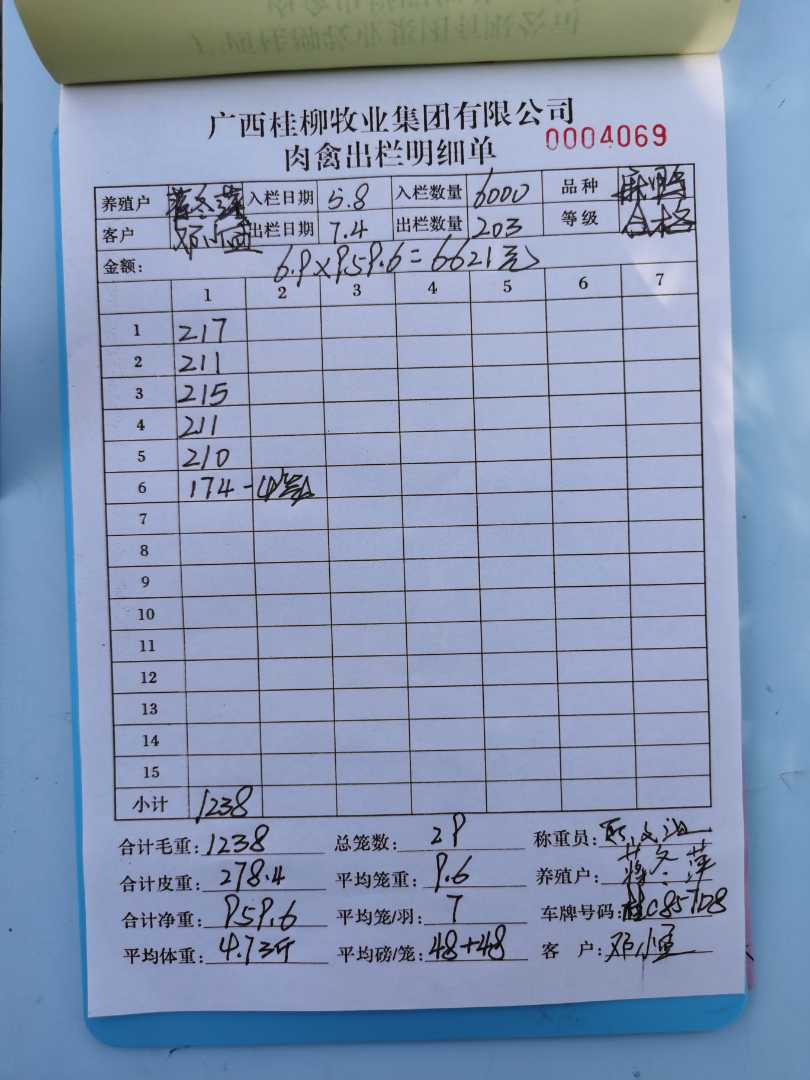 广西桂柳牧业集团有限公司
肉禽出栏明细单 0004069
养殖户 蒋冬萍 入栏日期 5.8 入栏数量 6000 品种 麻鸭
客户 邓小 出栏日期 7.4 出栏数量 203 等级 合格
金额: 6.9×959.6=6621元
1 2 3 4 5 6 7
1 217
2 211
3 215
4 211
5 210
6 174-4笼
7
8
9
10
11
12
13
14
15
小计 1238
合计毛重: 1238 总笼数: 29 称重员:
合计皮重: 278.4 平均笼重: 9.6 养殖户: 蒋冬萍
合计净重: 959.6 平均笼/羽: 7 车牌号码: 桂C857D8
平均体重: 4.73斤 平均磅/笼: 48+48 客 户: 邓小